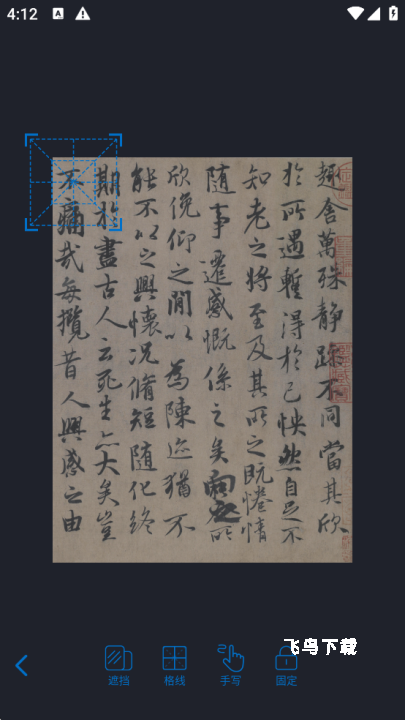 4:12
趣舍萬殊静躁不同當其欣
於所遇蹔得於己怏然自足不
知老之將至及其所之既惓情
隨事遷感慨係之矣向之所
欣俛仰之閒以為陳迹猶不
能不以之興懷況脩短隨化終
期於盡古人云死生亦大矣豈
不痛哉每攬昔人興感之由
飞鸟下载
遮挡
格线
手写
固定